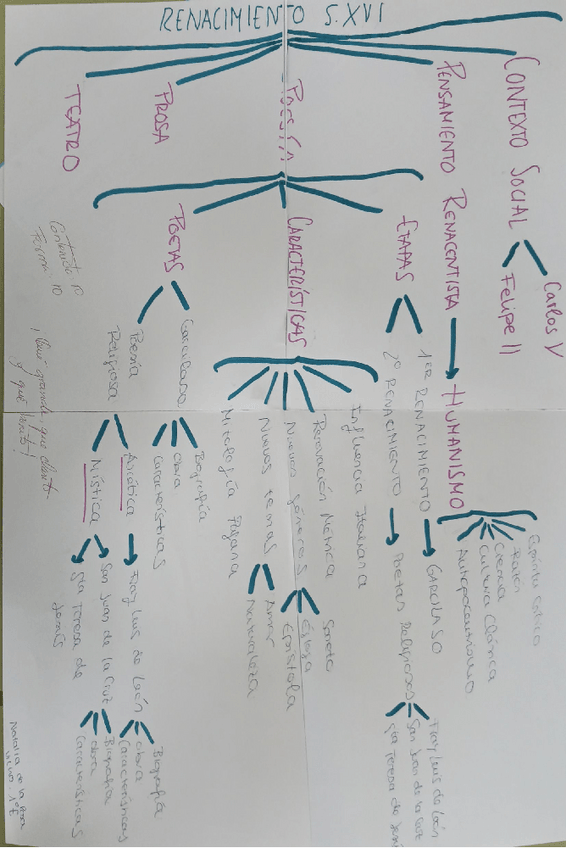 RENACIMIENTO S.XVI
CONTEXTO SOCIAL
Carlos V
Felipe II
PENSAMIENTO RENACENTISTA
HUMANISMO
Espíritu Crítico
Razón
Ciencia
Cultura Clásica
Antropocentrismo
POESÍA
ETAPAS
1ER RENACIMIENTO
GARCILASO
2º RENACIMIENTO
Poetas Religiosos
Fray Luis de León
San Juan de la Cruz
Sta Teresa de Jesús
CARACTERÍSTICAS
Influencia Italiana
Renovación Métrica
Soneto
Nuevos géneros
Égloga
Epístola
Nuevos temas
Amor
Naturaleza
Mitología Pagana
POETAS
Garcilaso
Biografía
Obra
Características
Poesía
Religiosa
Ascética
Fray Luis de León
Biografía
Obra
Características
Mística
San Juan de la Cruz
Biografía
Obra
Características
Sta Teresa de
Jesús
PROSA
TEATRO
Contenido 10
Forma 10
¡Qué grande, que claro
y qué bonito!
Natalia de la